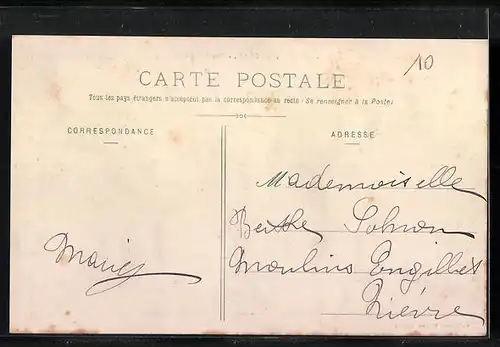 10
CARTE POSTALE
Tous les pays étrangers n'acceptent pas la correspondance au recto (Se renseigner à la Poste)
CORRESPONDANCE
ADRESSE
Mademoiselle
Berthe
Moulins Engilbert
Nièvre